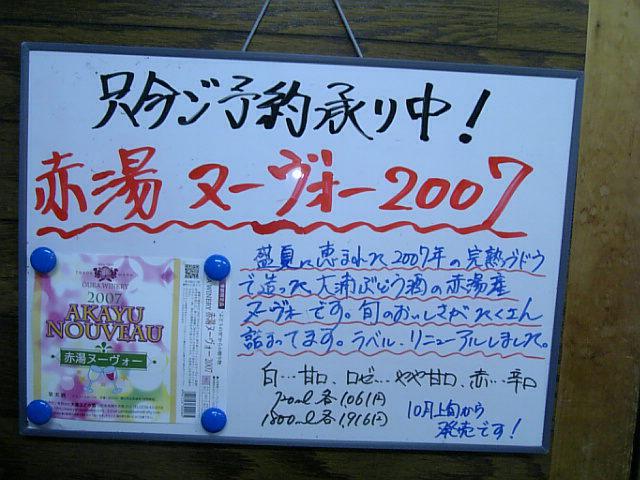 只今ご予約承り中!
赤湯 ヌーヴォー2007
盛夏に恵まれた2007年の完熟ブドウ
で造った大浦ぶどう酒の赤湯産
ヌーヴォーです。旬のおいしさがたくさん
詰まってます。ラベル、リニューアルしました。
白…甘口、ロゼ…やや甘口、赤…辛口
720ml各1,061円
1800ml各1,916円
10月上旬から
発売です!
OURA WINERY
2007
AKAYU
NOUVEAU
赤湯ヌーヴォー